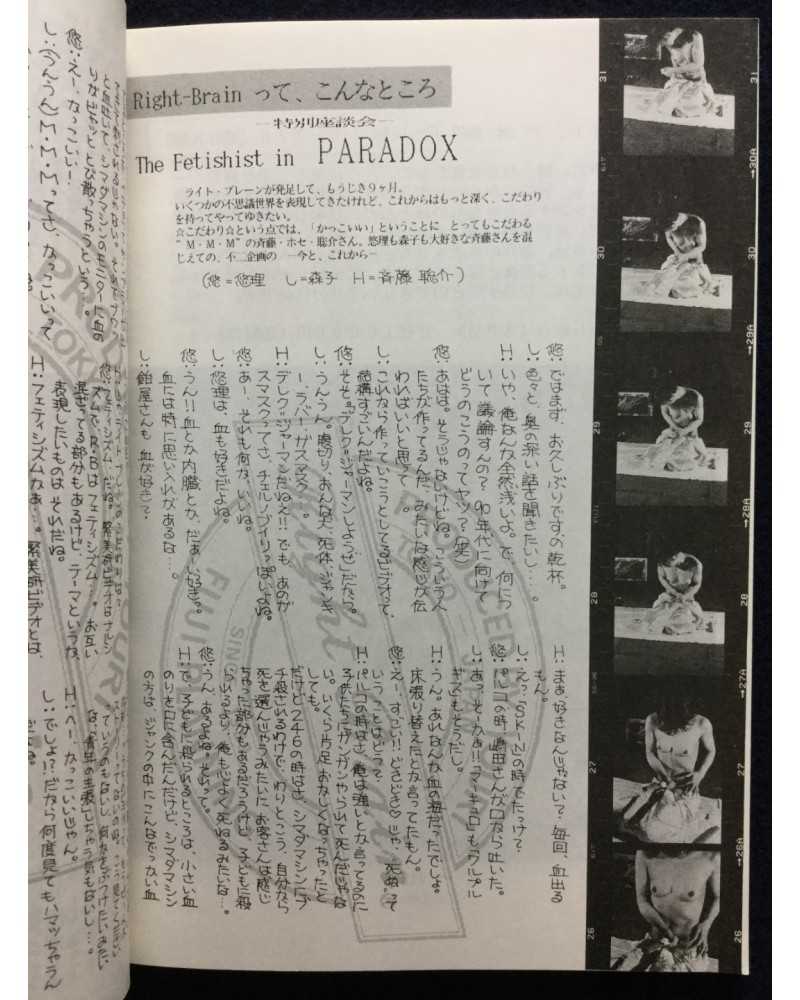 Right-Brain って、こんなところ
―特別座談会―
The Fetishist in PARADOX
ライト・ブレーンが発足して、もうじき9ヶ月。
いくつかの不思議世界を表現してきたけれど、これからはもっと深く、こだわり
を持ってやってゆきたい。
☆こだわり☆という点では、「かっこいい」ということに とってもこだわる
“M・M・M”の斉藤・ホセ・聡介さん。悠理も森子も大好きな斉藤さんを混
じえての、不二企画の ―今と、これから―
(悠=悠理 し=森子 H=斉藤 聡介)
悠:ではまず、お久しぶりですの乾杯。
し:色々と、奥の深い話を聞きたいし…。
H:いや、俺なんか全然浅いよ。で、何につ
いて議論すんの? 90年代に向けて
どうのこうのってヤツ?(笑)
悠:あはは。そうじゃないけどね。こういう人
たちが作ってるんだ、みたいな感じが伝
われればいいと思って…。
し:これから作っていこうとしてるビデオって、
結構すごいんだよね。
悠:そそ。「デレク=ジャーマンしようぜ」だから。
し:うんうん。腹切り、おんな犬、死体、ジャンキ
ー、ラバー、ガスマスク…。
H:デレク=ジャーマンだねえ!!でも、あのガ
スマスクってさ、チェルノブイリっぽいよね。
悠:あー、それも何か、いいね。
し:悠理は、血も好きだよね。
悠:うん!!血とか内臓とか、だぁーい好き。
血には特に思い入れがあるな…。
し:飴屋さんも、血が好き?
H:まあ、好きなんじゃない?毎回、血出る
もん。
し:えっ?「SKIN」の時でたっけ?
悠:パルコの時、嶋田さんが口から吐いた。
し:あっ、そーかぁ!!「マーキュロ」も、ワルプル
ギスもそうだし。
H:うん。あれなんか血の海だったでしょ。
床張り替えたとか言ってたもん。
悠:えー、すごい!!どきどき♡じゃ、死ぬって
いうことはどう?
H:パルコの時はさ、俺は強いとか言ってるのに
子供たちにガンガンやられて死んだじゃな
い。いくら片足おかしくなっちゃったと
しても。
だけど246の時はさ、シマダマシンにブ
チ殺されるわけで、わりとこう、自分から
死を選んじゃうみたいに、お客さんは感じ
ちゃった部分もあるだろうけど、子どもに殺
られるより、俺も心よく死ねるみたいな…。
悠:うん、あるよね、それって。
H:で、子どもに殺られるところは、小さい血
のりを口に含んだんだけど、シマダマシン
の方は、ジャンクの中にこんなでっかい血
と血吐いて、シマダマシンのモニターに血の
りがガシャッととび散っちゃうという…。
悠:えー、かっこいいー!
し:(うんうん)M・M・Mってさ、かっこいいって
悠:フェティシズム、だね。
ズムで、R・Bはフェティシズム…。お互い
混ざってる部分もあるけど、テーマというか、
表現したいものは、それだね。
H:フェティシズムかぁ…。緊美研ビデオとは、
な、「青年の主張」しちゃう気もないし…。
H:へー、かっこいいじゃん。
し:でしょ!?だから何度見てもハマッちゃうん
だよね。
31
30
29
28
27
26
→30A
→29A
→28A
→27A
→26A